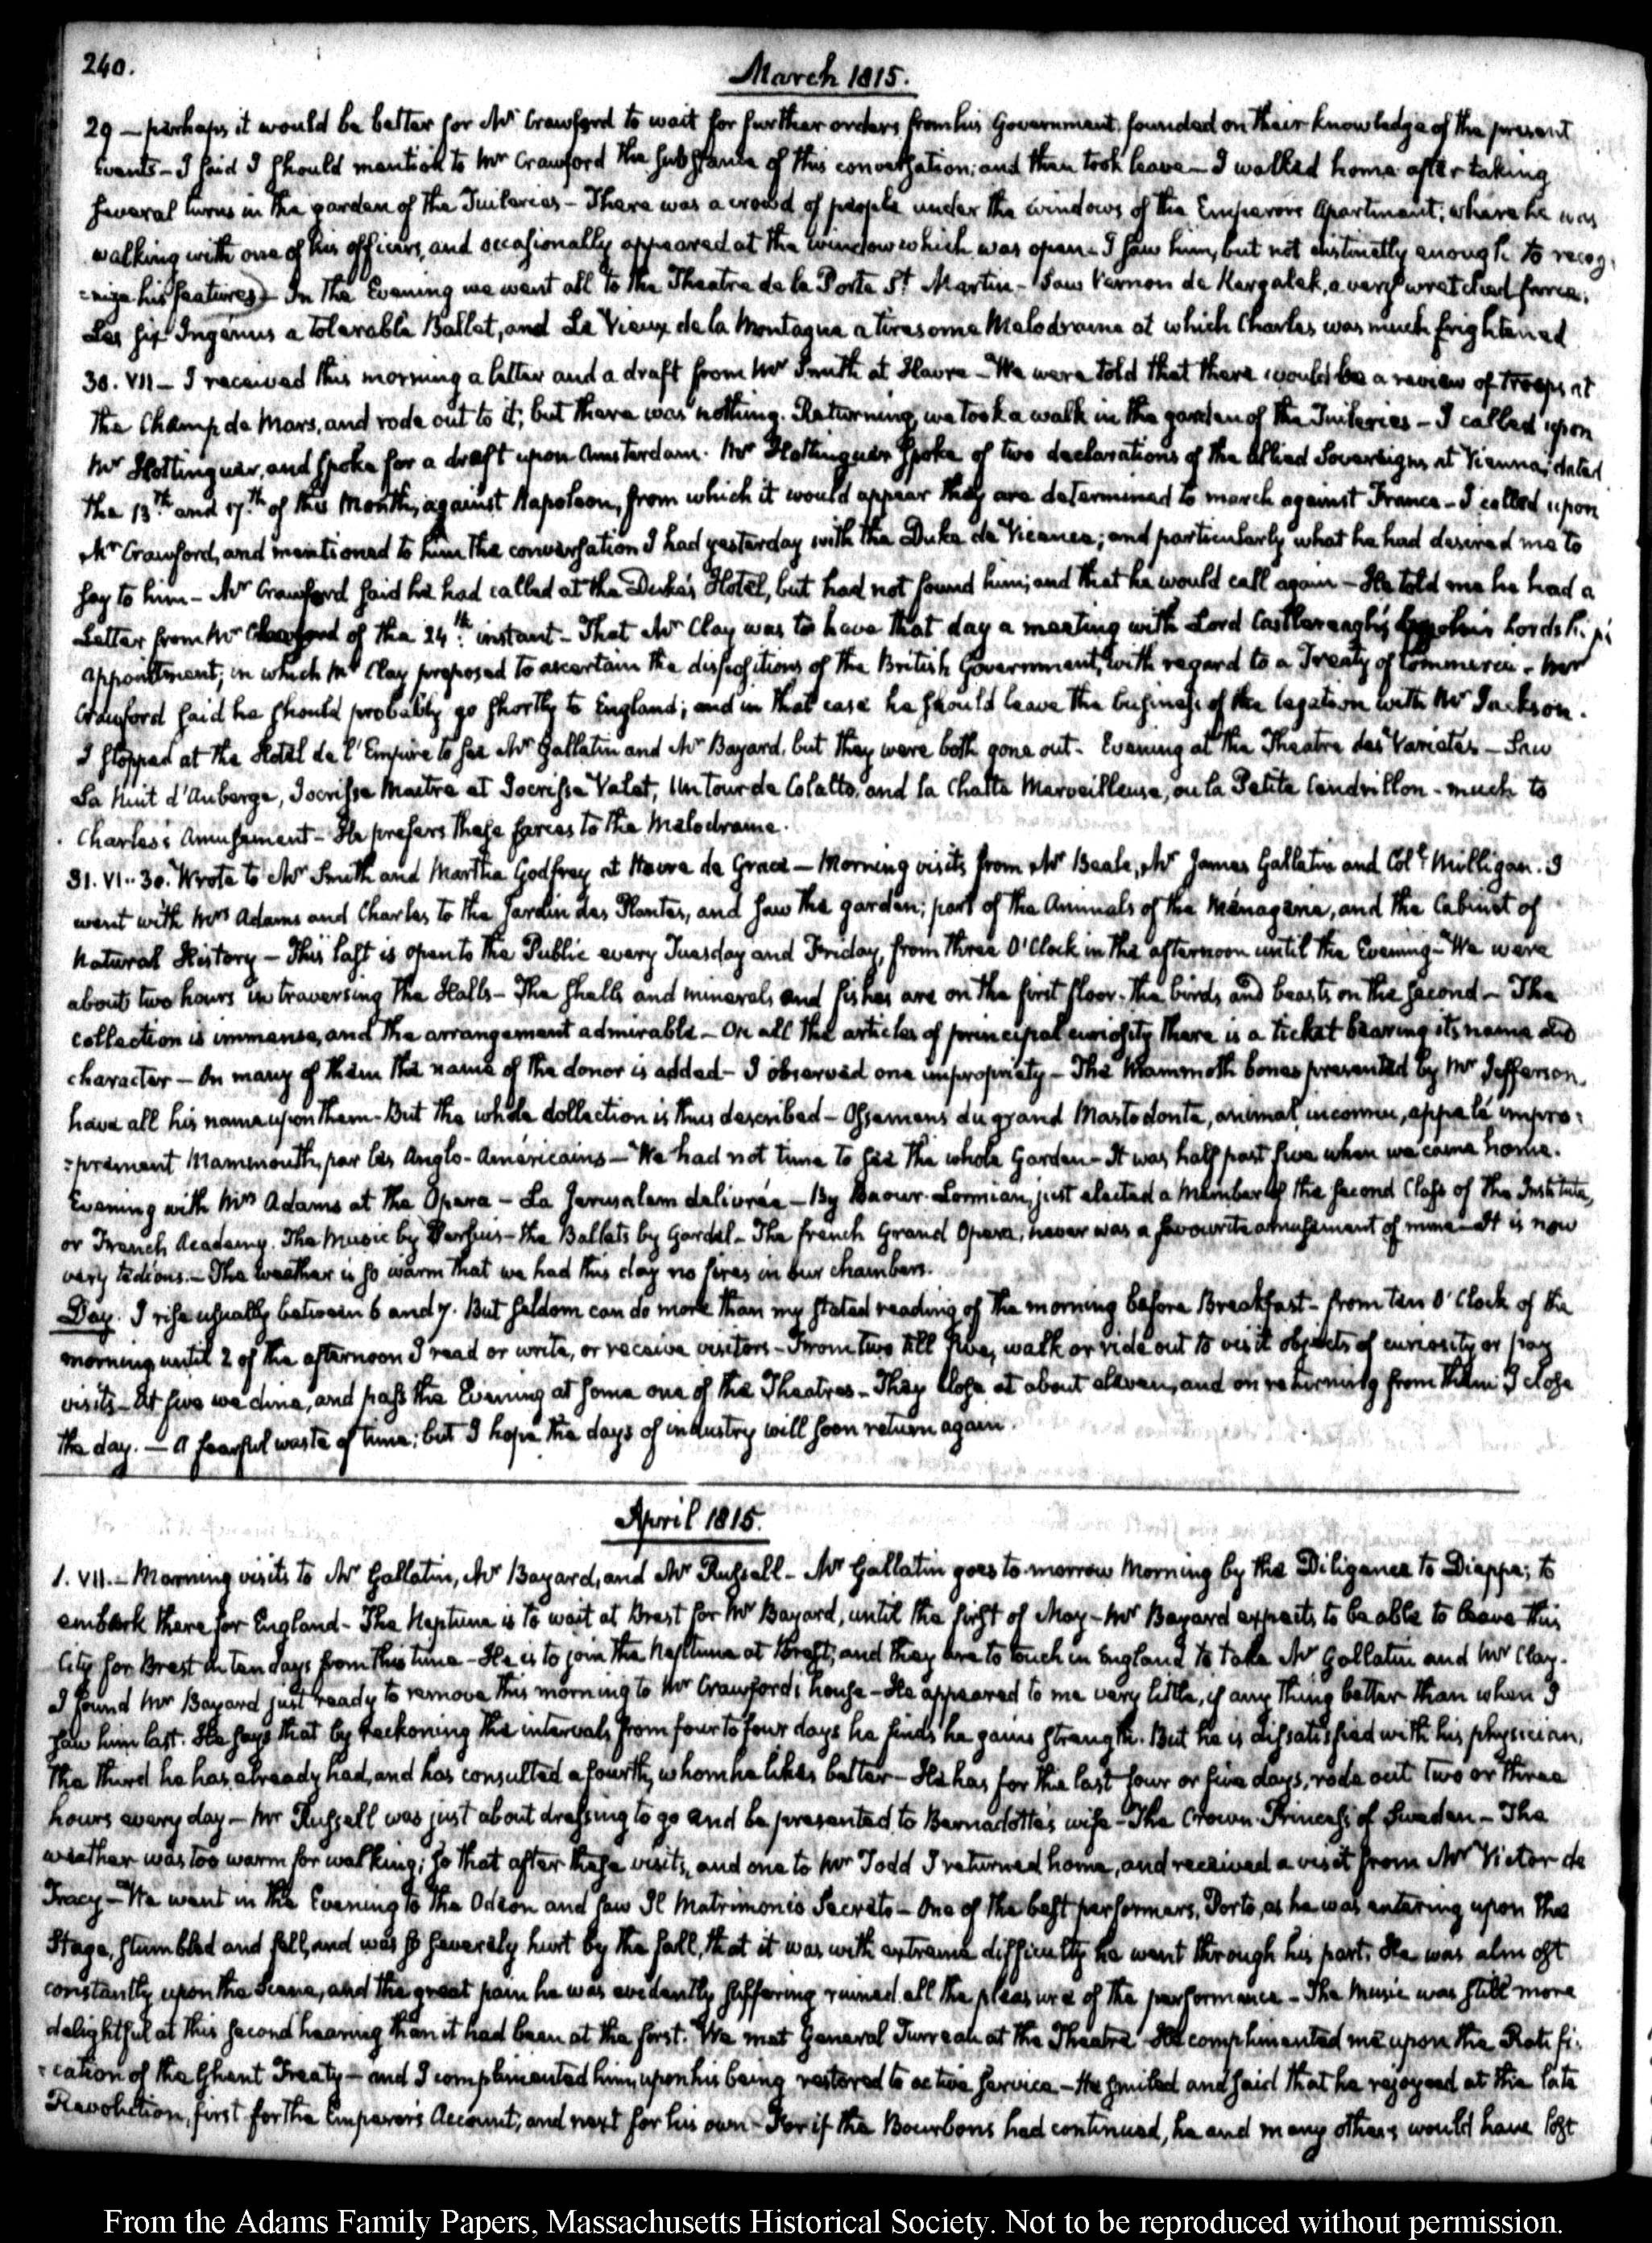 240.
March 1815.
29 — perhaps it would be better for Mr Crawford to wait for further orders from his Government, founded on their knowledge of the present
Events — I said I should mention to Mr Crawford the substance of this conversation; and then took leave — I walked home after taking
several turns in the garden of the Tuileries — There was a crowd of people under the windows of the Emperor's Apartment; where he was
walking with one of his officers, and occasionally appeared at the window which was open — I saw him, but not distinctly enough to recog-
=nize his features) — In the Evening we went all to the Theatre de la Porte St Martin — Saw Vernon de Kergalek, a very wretched farce;
Les six Ingénus a tolerable Ballet, and Le Vieux de la Montagne a tiresome Melodrame at which Charles was much frightened
30. VII — I received this morning a letter and a draft from Mr Smith at Havre — We were told that there would be a review of troops at
the Champ de Mars, and rode out to it; but there was nothing. Returning, we took a walk in the garden of the Tuileries — I called upon
Mr Hottinguer, and spoke for a draft upon Amsterdam. Mr Hottinguer spoke of two declarations of the allied Sovereigns at Vienna, dated
the 13th and 17th of this Month, against Napoleon, from which it would appear they are determined to march against France — I called upon
Mr Crawford, and mentioned to him the conversation I had yesterday with the Duke de Vicence; and particularly what he had desired me to
say to him — Mr Crawford said he had called at the Duke's Hotel, but had not found him; and that he would call again — He told me he had a
Letter from Mr of the 24th instant — That Mr Clay was to have that day a meeting with Lord Castlereagh his Lordship's
appointment; in which Mr Clay proposed to ascertain the dispositions of the British Government, with regard to a Treaty of Commerce. Mr
Crawford said he should probably go shortly to England; and in that case he should leave the business of the legation with Mr Jackson.
I stopped at the Hotel de l'Empire to see Mr Gallatin and Mr Bayard, but they were both gone out — Evening at the Theatre des Varietés — Saw
La Nuit d'Auberge, Jocrisse Maitre et Jocrisse Valet, Un tour de Colalto, and la Chatte Merveilleuse, ou la Petite Cendrillon — much to
Charles's Amusement — He prefers these farces to the Melodrame.
31. VI.. 30. Wrote to Mr Smith and Martha Godfrey at Havre de Grace — Morning visits from Mr Beale, Mr James Gallatin and Coll Milligan. I
went with Mrs Adams and Charles to the Jardin des Plantes, and saw the garden; part of the Animals of the Ménagerie, and the Cabinet of
Natural History — This last is open to the Public every Tuesday and Friday, from three O'Clock in the afternoon until the Evening — We were
about two hours in traversing the Halls — The shells and minerals and fishes are on the first floor. the birds and beasts on the second — The
collection is immense, and the arrangement admirable — On all the articles of principal curiosity there is a ticket bearing its name and
character — On many of them the name of the donor is added — I observed one impropriety — The Mammoth bones presented by Mr Jefferson,
have all his name upon them — But the whole collection is thus described — Ossemens du grand Mastodonte, animal inconnu, appelé impro=
=prement Mammouth, par les Anglo-Américains — We had not time to see the whole Garden — It was half past five when we came home.
Evening with Mrs Adams at the Opera — La Jerusalem delivrée — By Baour-Lormian, just elected a Member of the second Class of the Institute,
or French Academy. The Music by Persuis — the Ballets by Gardel — The french Grand Opera, never was a favourite amusement of mine — It is now
very tedious. — The weather is so warm that we had this day no fires in our chambers.
Day. I rise usually between 6 and 7. But seldom can do more than my stated reading of the morning before Breakfast — from ten O'Clock of the
morning until 2 of the afternoon I read or write, or receive visitors — From two till five, walk or ride out to visit objects of curiosity or pay
visits — At five we dine, and pass the Evening at some one of the Theatres — They close at about eleven, and on returning from them I close
the day. — A fearful waste of time; but I hope the days of industry will soon return again.
April 1815.
1. VII. — Morning visits to Mr Gallatin, Mr Bayard, and Mr Russell — Mr Gallatin goes to-morrow Morning by the Diligence to Dieppe; to
embark there for England — The Neptune is to wait at Brest for Mr Bayard, until the first of May — Mr Bayard expects to be able to leave this
City for Brest in ten days from this time — He is to join the Neptune at Brest; and they are to touch in England to take Mr Gallatin and Mr Clay.
I found Mr Bayard just ready to remove this morning to Mr Crawford's house — He appeared to me very little, if any thing better than when I
saw him last. He says that by reckoning the intervals from four to four days he finds he gains strength. But he is dissatisfied with his physician,
the third he has already had, and has consulted a fourth, whom he likes better — He has for the last four or five days, rode out two or three
hours every day — Mr Russell was just about dressing to go and be presented to Bernadotte's wife — The Crown-Princess of Sweden — The
weather was too warm for walking; so that after these visits, and one to Mr Todd I returned home, and received a visit from Mr Victor de
Tracy — We went in the Evening to the Odéon and saw Il Matrimonio Secreto — One of the best performers, Porto, as he was entering upon the
Stage, stumbled and fell, and was so severely hurt by the fall, that it was with extreme difficulty he went through his part. He was almost
constantly upon the Scene, and the great pain he was evidently suffering ruined all the pleasure of the performance — The Music was still more
delightful at this second hearing than it had been at the first. We met General Turreau at the Theatre — He complimented me upon the Ratifi-
=cation of the Ghent Treaty — and I complimented him, upon his being restored to active service — He smiled and said that he rejoyced at the late
Revolution, first for the Emperor's Account; and next for his own — For if the Bourbons had continued, he and many others would have lost
From the Adams Family Papers, Massachusetts Historical Society. Not to be reproduced without permission.